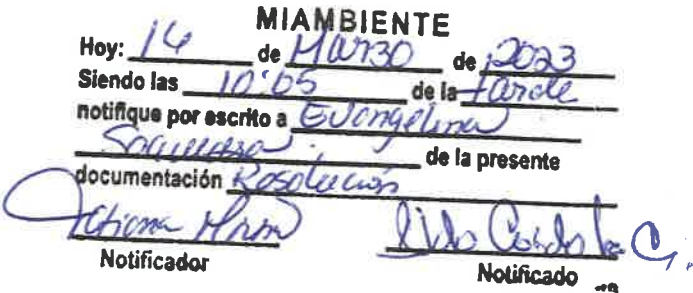 MIAMBIENTE
Hoy: 14 de Marzo de 2023
Siendo las 10:05 de la tarde
notifique por escrito a Evangelina
de la presente
documentación Resolución
Notificador Notificado